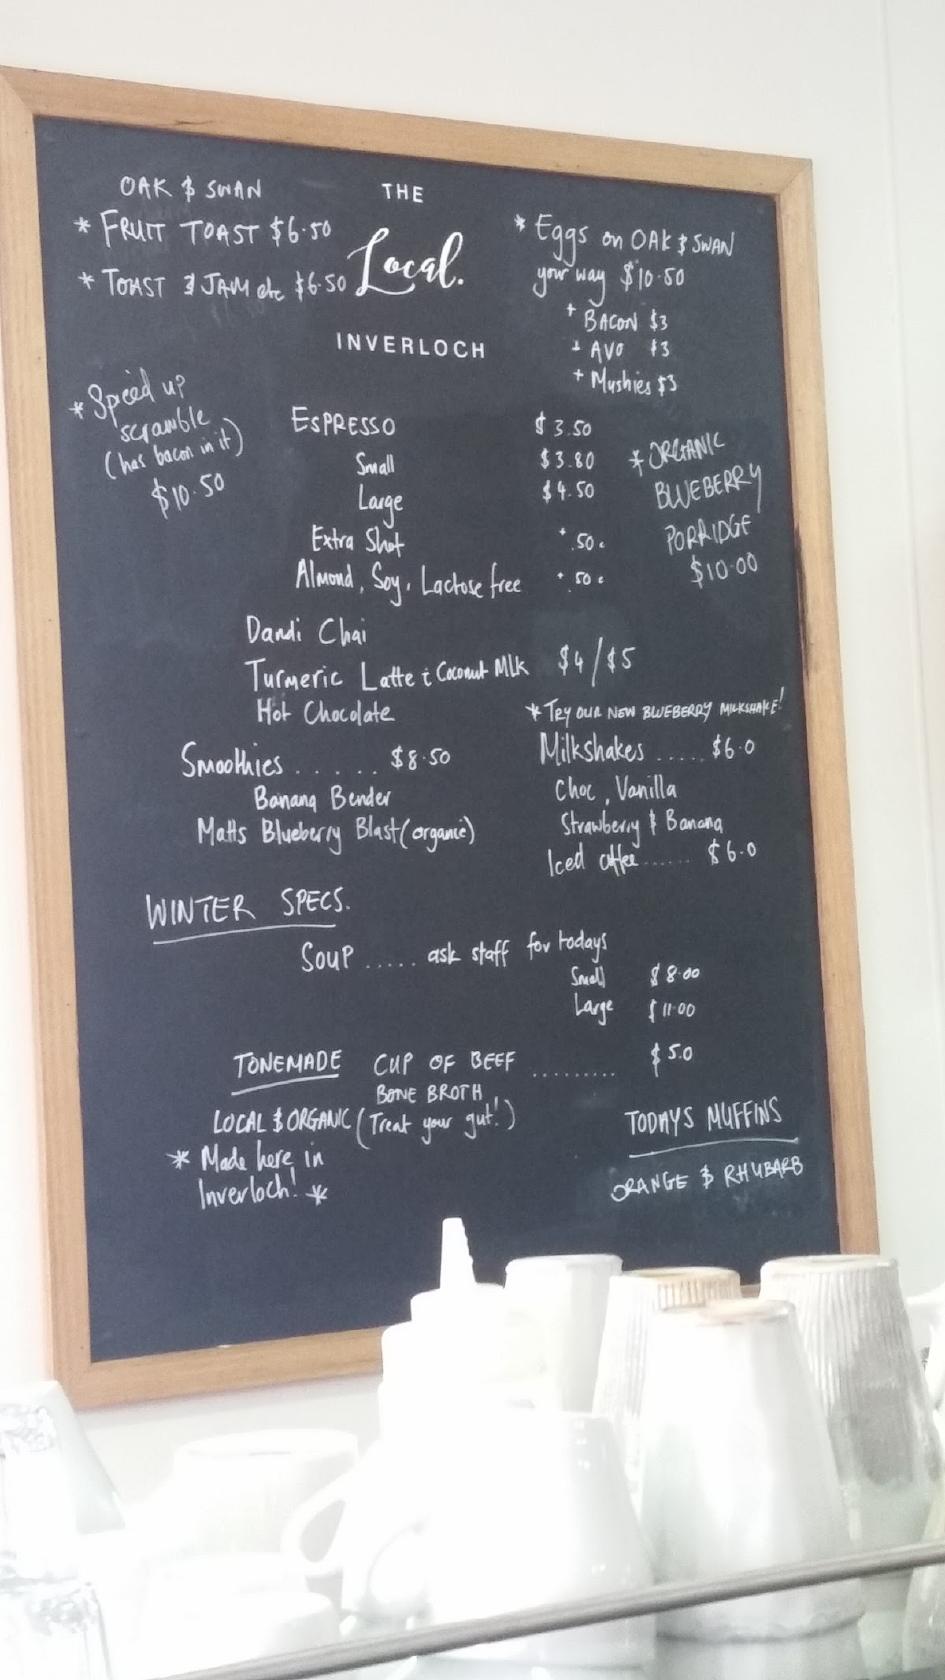 OAK & SWAN
* FRUIT TOAST $6.50
* TOAST & JAM etc $6.50
THE
Local.
INVERLOCH
* Eggs on OAK & SWAN
your way $10.50
+ BACON $3
+ AVO $3
+ Mushies $3
* Speed up
scramble
(has bacon in it)
$10.50
ESPRESSO $3.50
Small $3.80
Large $4.50
Extra Shot + .50c
Almond, Soy, Lactose free + .50c
* ORGANIC
BLUEBERRY
PORRIDGE
$10.00
Dandi Chai
Turmeric Latte & Coconut Mlk $4/$5
Hot Chocolate
Smoothies . . . . . . $8.50
Banana Bender
Matts Blueberry Blast (organic)
* TRY OUR NEW BLUEBERRY MILKSHAKE!
Milkshakes ..... $6.0
Choc, Vanilla
Strawberry & Banana
Iced coffee ...... $6.0
WINTER SPECS.
SOUP ..... ask staff for todays
Small $8.00
Large $11.00
TONEMADE CUP OF BEEF ......... $5.0
BONE BROTH
LOCAL & ORGANIC (Treat your gut!)
* Made here in
Inverloch! *
TODAYS MUFFINS
ORANGE & RHUBARB